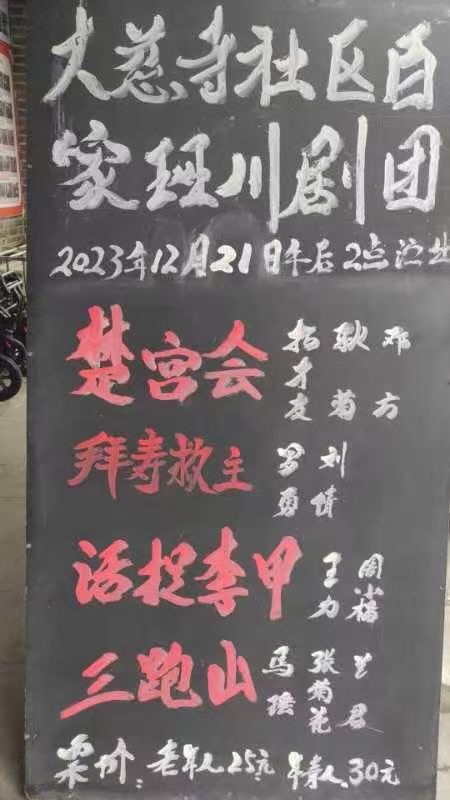 大慈寺社区百
家班川剧团
2023年12月21日午后2点演出
楚宫会 才友 耿菊 邓方
拜寿救主 罗勇 刘倩
活捉李甲 王力 周小
三跑山 马瑶 张菊花 兰君
票价: 老年人25元 年青人30元